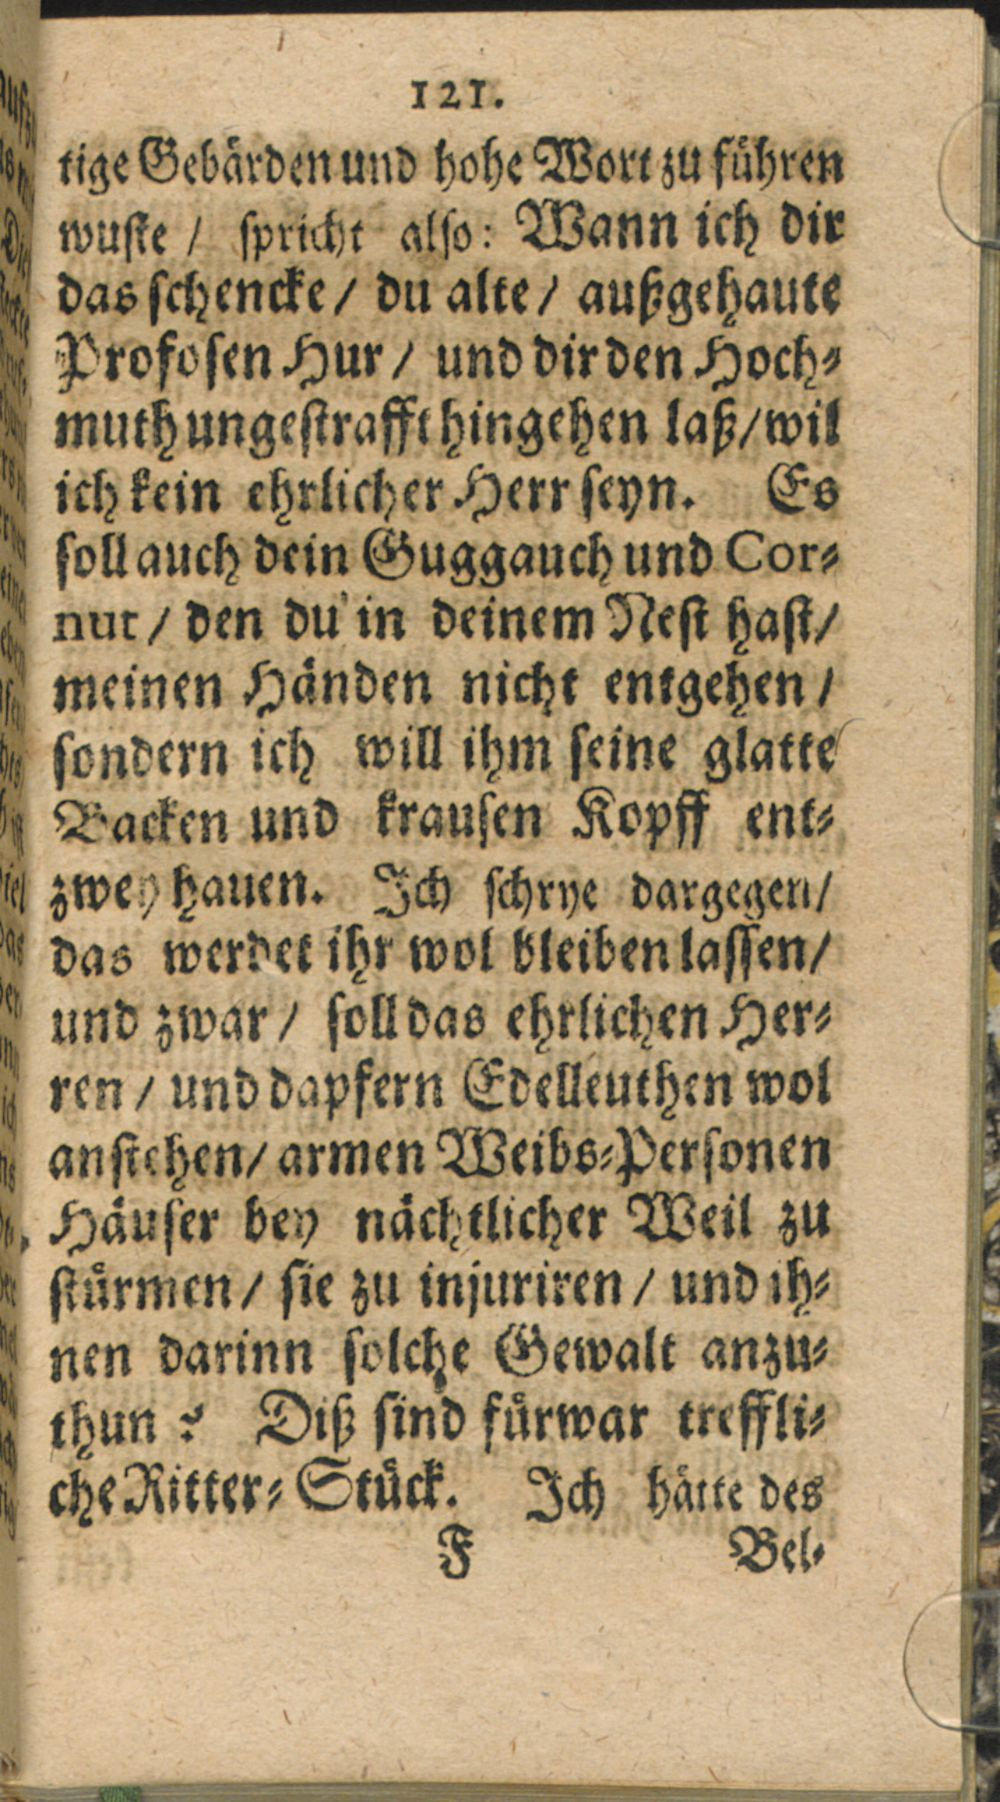 121.
tige Gebärden und hohe Wort zu führen
wuste / spricht also: Wann ich dir
das schencke / du alte / außgehaute
Profosen Hur / und dir den Hoch-
muth ungestrafft hingehen laß / wil
ich kein ehrlicher Herr seyn. Es
soll auch dein Guggauch und Cor-
nut / den du in deinem Nest hast /
meinen Händen nicht entgehen /
sondern ich will ihm seine glatte
Backen und krausen Kopff ent-
zwey hauen. Ich schrye dargegen /
das werdet ihr wol bleiben lassen /
und zwar / soll das ehrlichen Her-
ren / und dapfern Edelleuthen wol
anstehen / armen Weibs-Personen
Häuser bey nächtlicher Weil zu
stürmen / sie zu injuriren / und ih-
nen darinn solche Gewalt anzu-
thun ? Diß sind fürwar treffli-
che Ritter-Stück. Ich hätte des
F Bel-